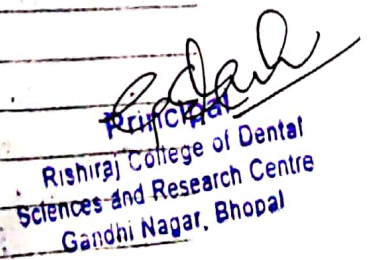 Principal
Rishiraj College of Dental
Sciences and Research Centre
Gandhi Nagar, Bhopal